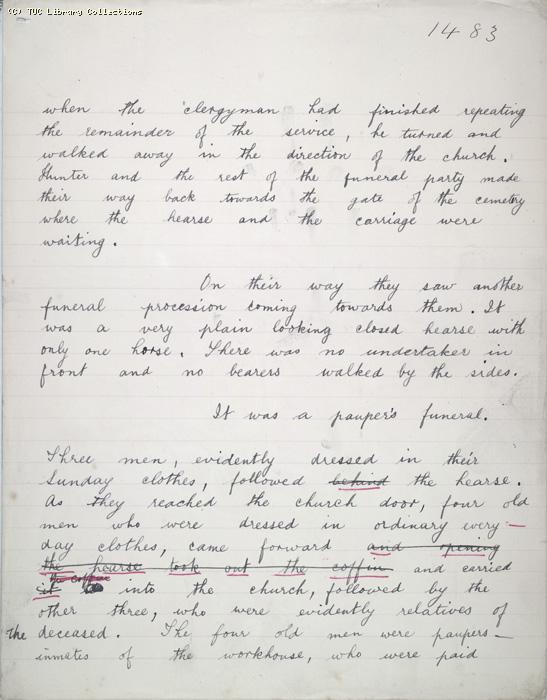 (C) TUC Library Collections
1483
when the clergyman had finished repeating
the remainder of the service, he turned and
walked away in the direction of the church.
Hunter and the rest of the funeral party made
their way back towards the gate of the cemetry
where the hearse and the carriage were
waiting.
On their way they saw another
funeral procession coming towards them. It
was a very plain looking closed hearse with
only one horse. There was no undertaker in
front and no bearers walked by the sides.
It was a pauper's funeral.
Three men, evidently dressed in their
Sunday clothes, followed behind the hearse.
As they reached the church door, four old
men who were dressed in ordinary every-
day clothes, came forward and opening
the hearse took out the coffin and carried
the coffin
it into the church, followed by the
other three, who were evidently relatives of
the deceased. The four old men were paupers-
inmates of the workhouse, who were paid